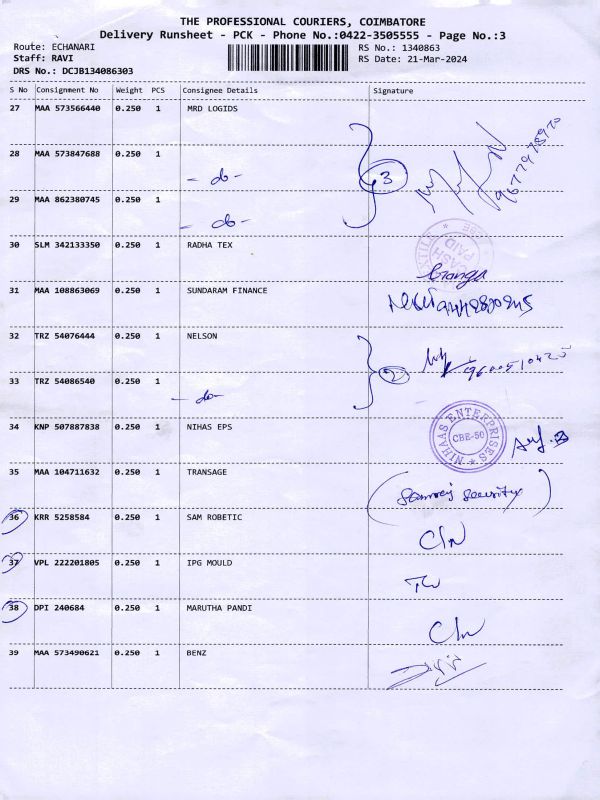 THE PROFESSIONAL COURIERS, COIMBATORE
Delivery Runsheet - PCK - Phone No.:0422-3505555 - Page No.:3
Route: ECHANARI RS No.: 1340863
Staff: RAVI RS Date: 21-Mar-2024
DRS No.: DCJB134086303
S No Consignment No Weight PCS Consignee Details Signature
27 MAA 573566440 0.250 1 MRD LOGIDS
28 MAA 573847688 0.250 1
- do - 3
29 MAA 862380745 0.250 1
- do -
30 SLM 342133350 0.250 1 RADHA TEX
CASH PAID
31 MAA 108863069 0.250 1 SUNDARAM FINANCE
32 TRZ 54076444 0.250 1 NELSON
33 TRZ 54086540 0.250 1 2
- do -
34 KNP 507887838 0.250 1 NIHAS EPS
NIHAAS ENTERPRISES CBE-50
35 MAA 104711632 0.250 1 TRANSAGE
security
36 KRR 5258584 0.250 1 SAM ROBETIC
37 VPL 222201805 0.250 1 IPG MOULD
38 DPI 240684 0.250 1 MARUTHA PANDI
39 MAA 573490621 0.250 1 BENZ